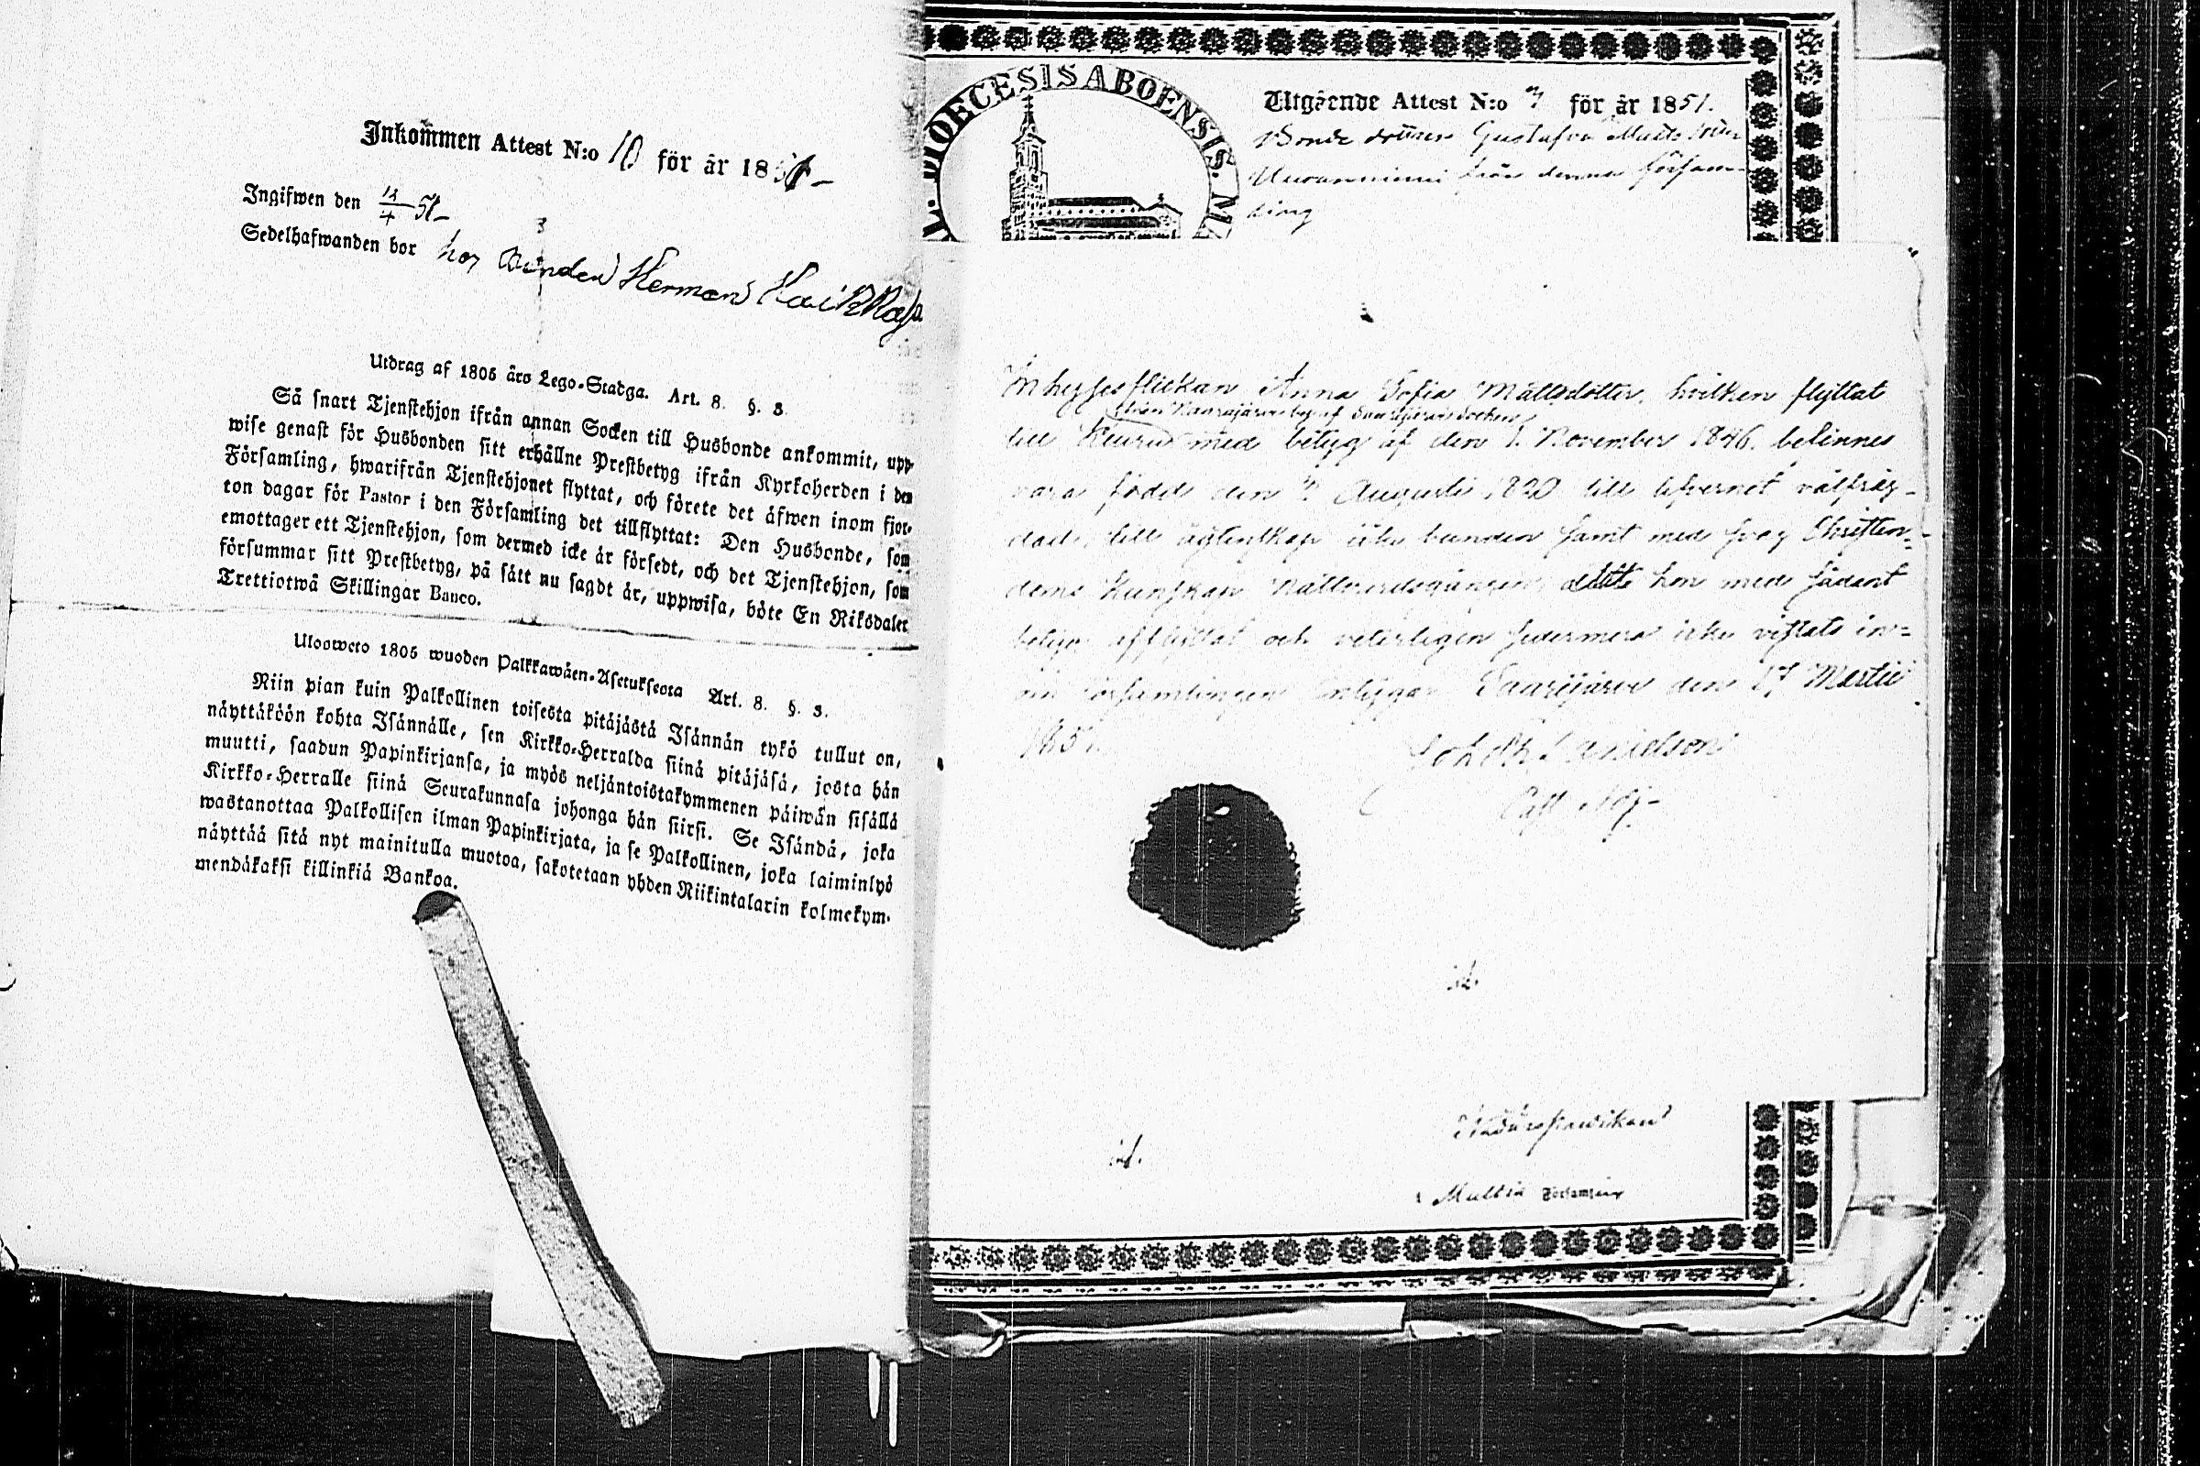 Inkommen Attest N:o 10 för år 1851
Ingifwen den 14/4 51
Sedelhafwanden bor hos Bonden Herman
Utdrag af 1805 års Lego-Stadga. Art. 8. §. 3.
Så snart Tjenstehjon ifrån annan Socken till Husbonde ankommit, upp-
wise genast för Husbonden sitt erhållne Prestbetyg ifrån Kyrkoherden i den
Församling, hwarifrån Tjenstehjonet flyttat, och förete det äfwen inom fjor-
ton dagar för Pastor i den Församling det tillflyttat: Den Husbonde, som
emottager ett Tjenstehjon, som dermed icke är försedt, och det Tjenstehjon, som
försummar sitt Prestbetyg, på sätt nu sagdt är, uppwisa, böte En Riksdaler
Trettiotwå Skillingar Banco.
Ulosweto 1805 wuoden Palkkawäen-Asetuksesta Art. 8. §. 3.
Niin pian kuin Palkollinen toisesta pitäjästä Isännän tykö tullut on,
näyttäköön kohta Isännälle, sen Kirkko-Herralda siinä pitäjäsä, josta hän
muutti, saadun Papinkirjansa, ja myös neljäntoistakymmenen päiwän sisällä
Kirkko-Herralle siinä Seurakunnasa johonga hän siirsi. Se Isändä, joka
wastanottaa Palkollisen ilman Papinkirjata, ja se Palkollinen, joka laiminlyö
näyttää sitä nyt mainitulla muotoa, sakotetaan yhden Riikintalarin kolmekym-
mendäkaksi killinkiä Bankoa.
DIOECESIS ABOENSIS. M
Utgående Attest N:o 7 för år 1851.
Bonde Gustafva
från denna försam-
ling
Inhysesflickan Anna Sofia Mattsdotter, hvilken flyttat
från Saarijärvi socken
till Keuru med betyg af den 1 November 1846, befinnes
vara född den 4 Augusti 1820 till lefvernet välfräg-
dad, till ägtenskap icke bunden samt med svag Christen-
doms kunskap Nattvardsgången, hon med sådant
betyg afflyttat och veterligen sedermera icke vistats in-
om församlingen, intygar Saarijärvi den 17 Martii
1851.
Danielson
Adj.
id.
id.
Multia Församling